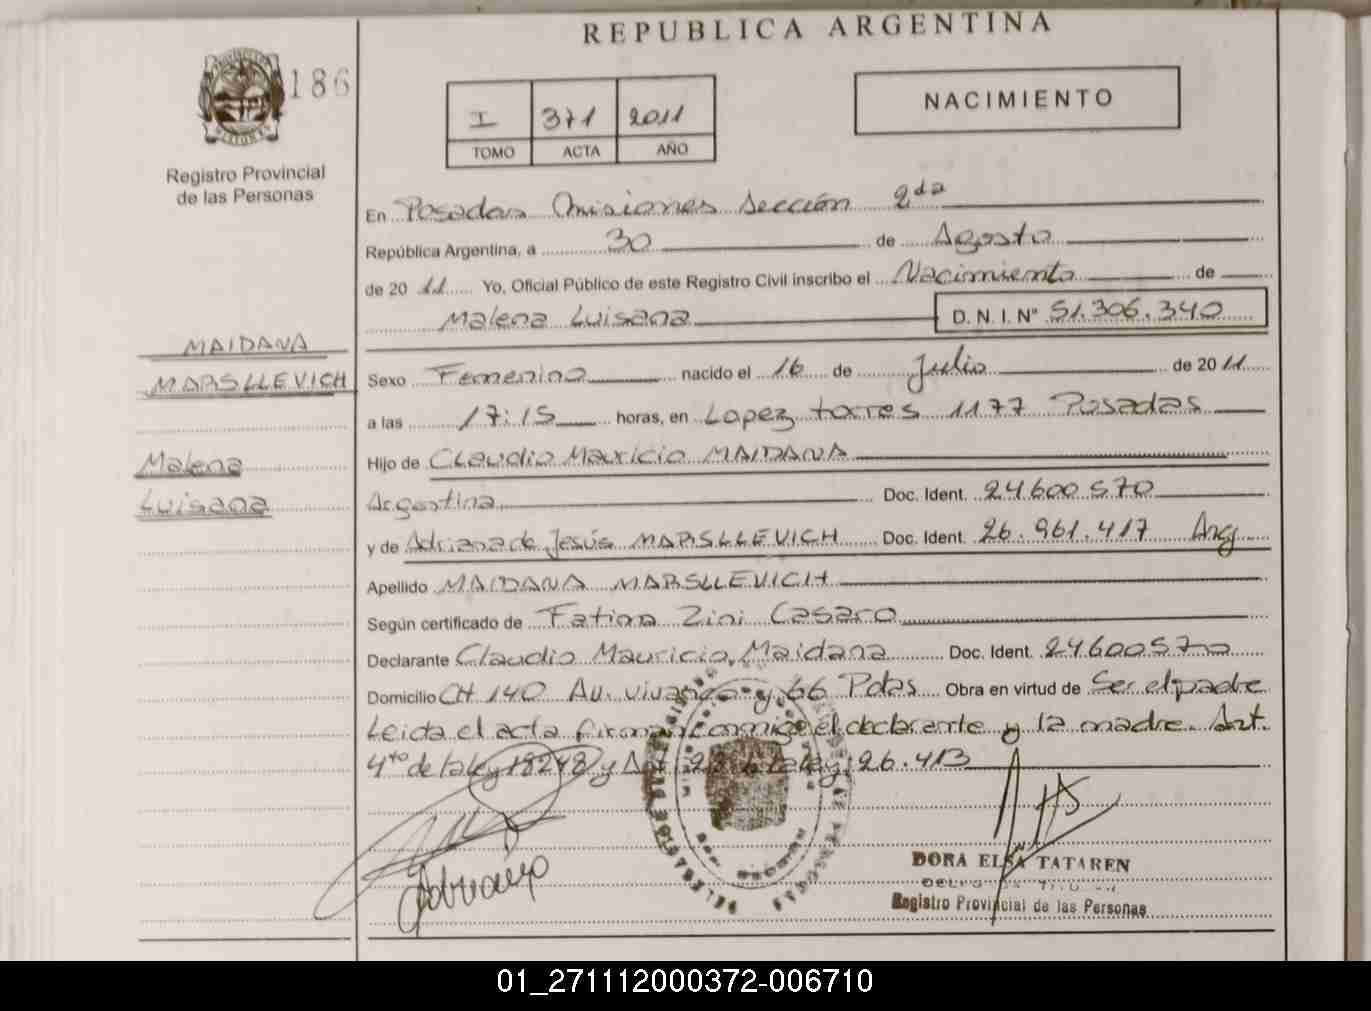 REPUBLICA ARGENTINA
186
I 371 2011
TOMO ACTA AÑO
NACIMIENTO
Registro Provincial
de las Personas
En Posadas Misiones Sección 2da
República Argentina, a 30 de Agosto
de 20 11 Yo, Oficial Público de este Registro Civil inscribo el Nacimiento de
Malena Luisana D. N. I. Nº 51.306.340
MAIDANA
MARSLLEVICH
Sexo Femenino nacido el 16 de Julio de 20 11
a las 17:15 horas, en Lopez torres 1177 Posadas
Malena
Luisana
Hijo de Claudio Mauricio MAIDANA
Argentina Doc. Ident. 24.600.570
y de Adriana de Jesús MARSLLEVICH Doc. Ident. 26.961.417 Arg
Apellido MAIDANA MARSLLEVICH
Según certificado de Fatima Zini Casaro
Declarante Claudio Mauricio Maidana Doc. Ident. 24600570
Domicilio CH 140 Av. vivanco y 66 Pdas Obra en virtud de Ser el padre
Leida el acta firman conmigo el declarante y la madre. Art.
4to de la ley 18248 y Art 28 de la ley 26.413
DORA ELSA TATAREN
Registro Provincial de las Personas
01_271112000372-006710